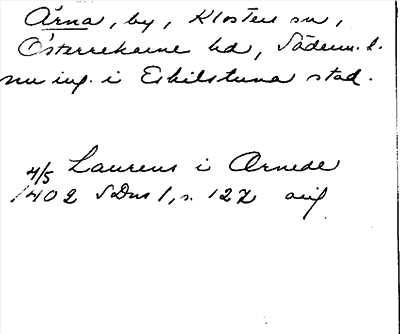 Årna, by, Klosters sn,
Österrekarne hd, Söderm. l.
nu ing. i Eskilstuna stad.
4/5 Laurens i Arnede
1402 SDns 1, s. 122 avs